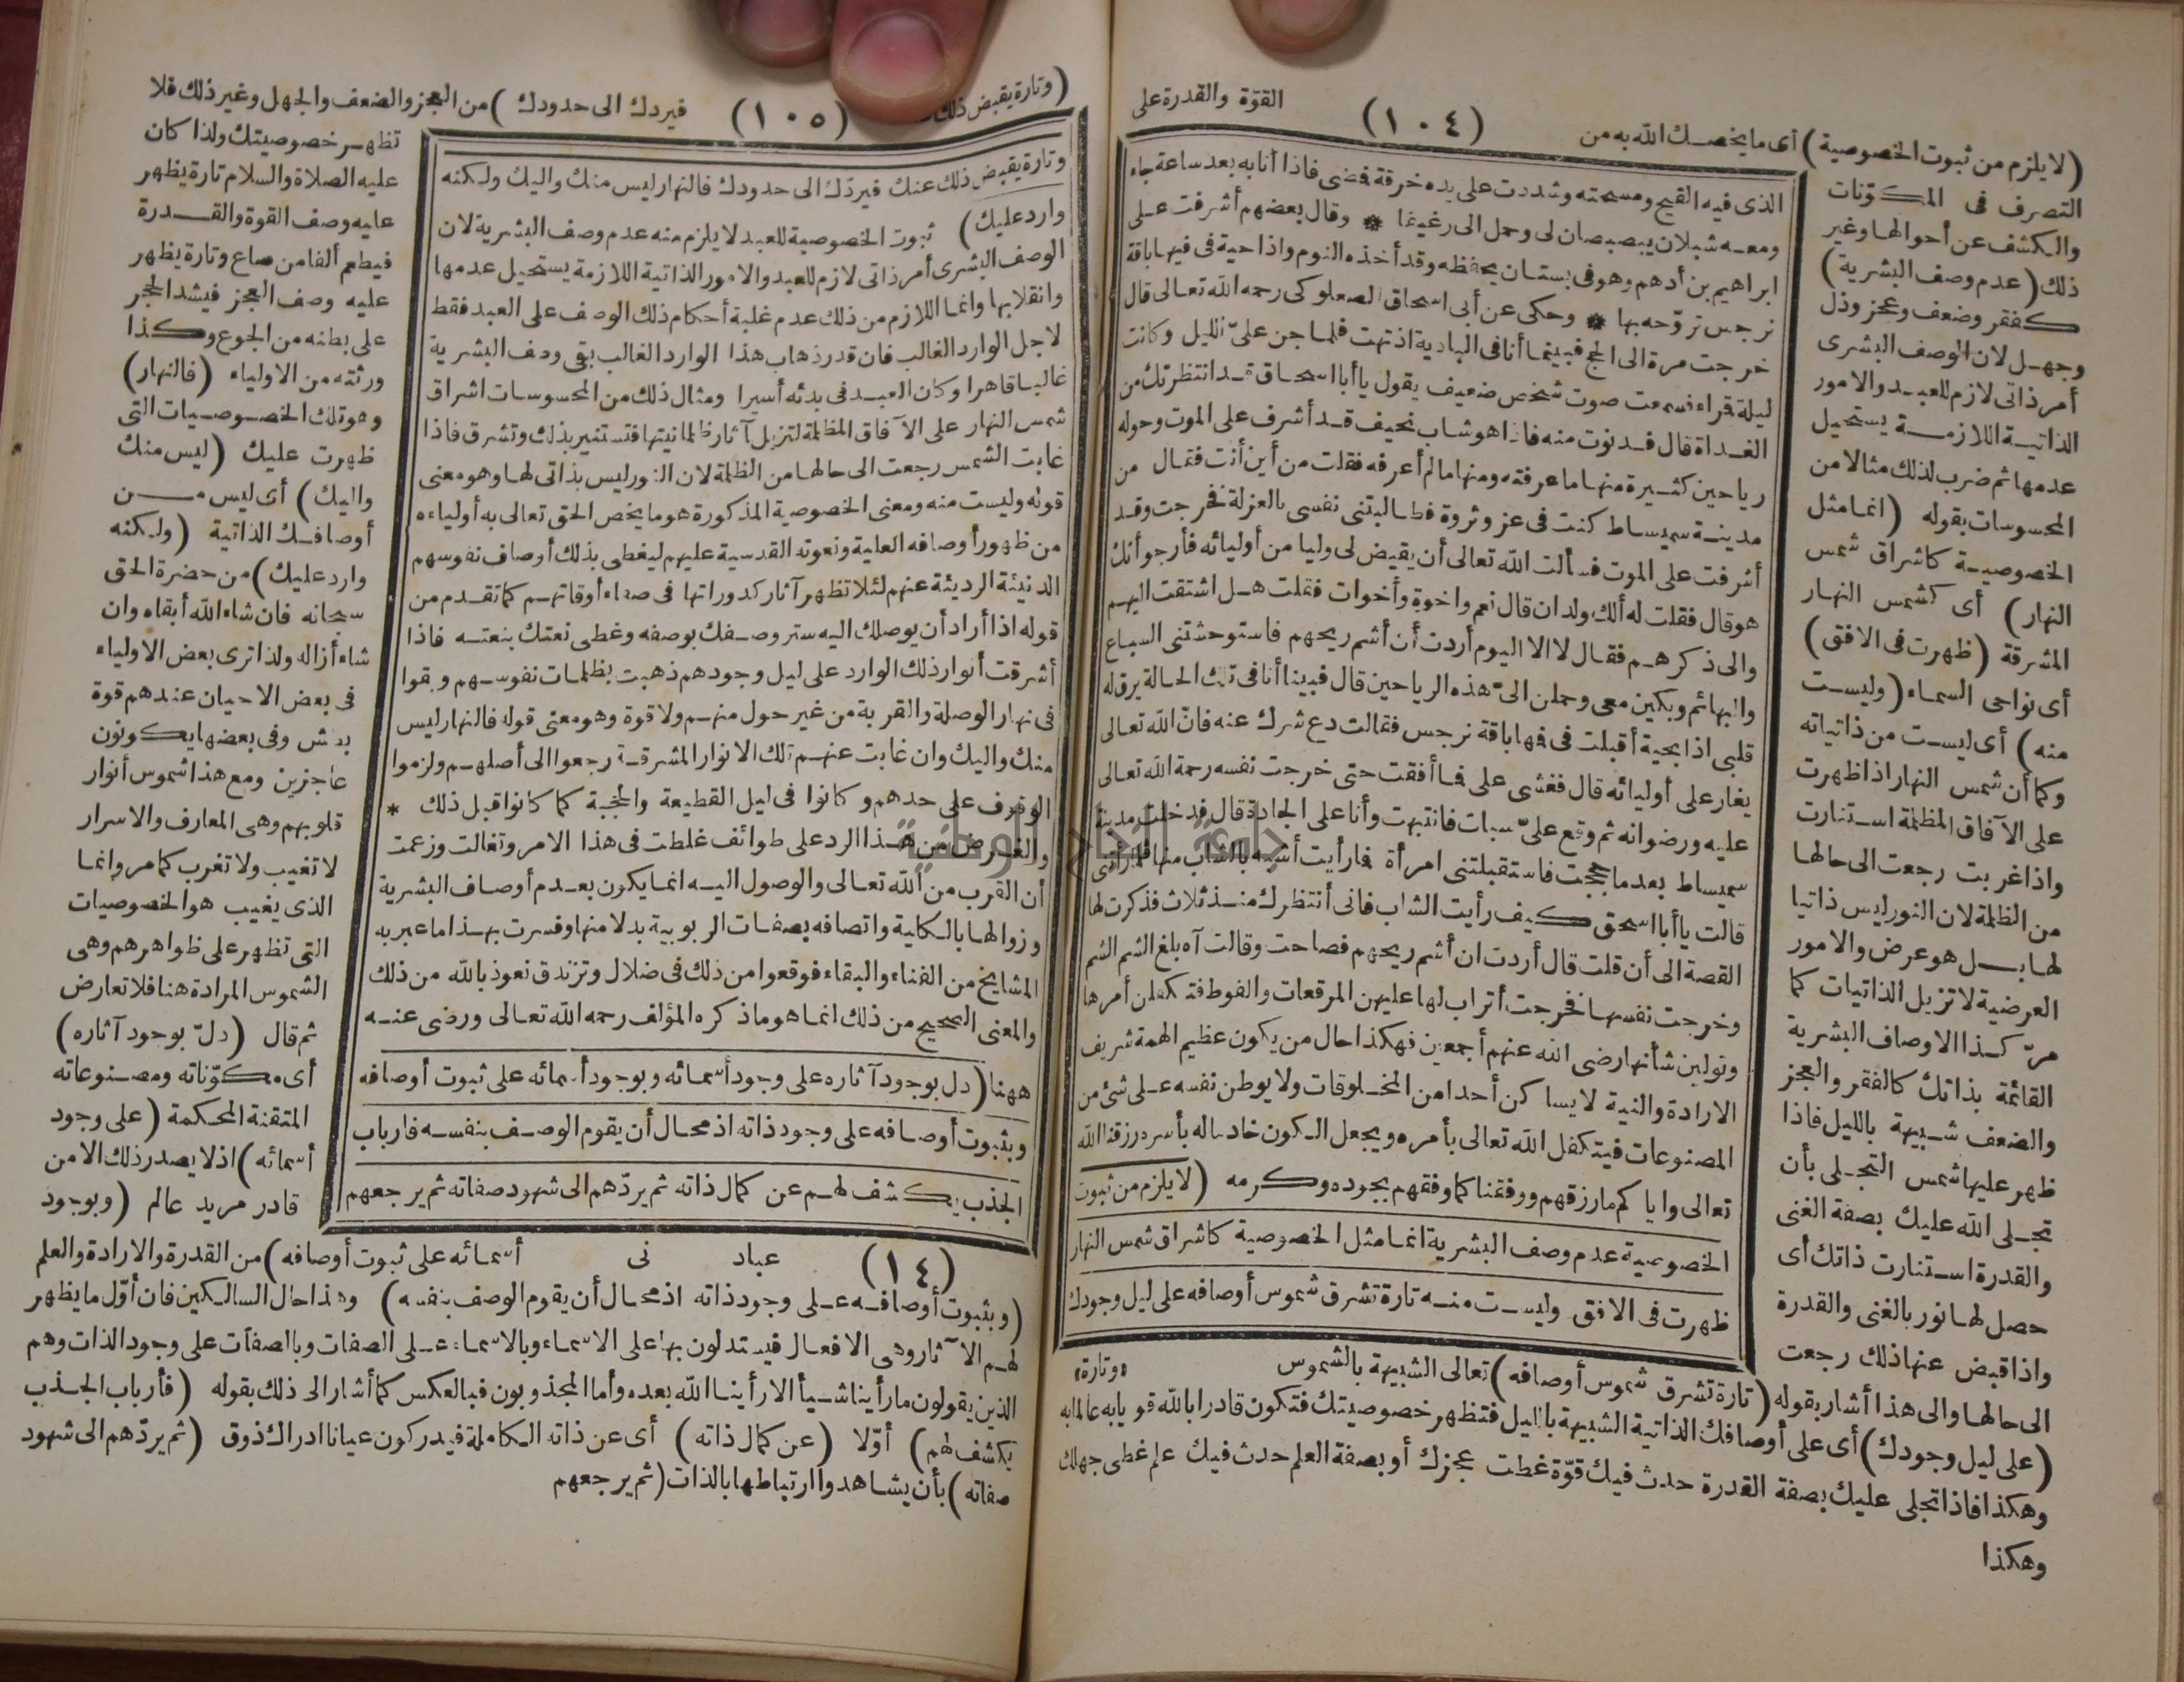 القوّة والقدرة على
(١٠٤)
(لا يلزم من ثبوت الخصوصية) أى ما يخصك الله به من
التصرف فى المكوّنات
والكشف عن أحوالها وغير
ذلك (عدم وصف البشرية)
كفقر وضعف وعجز وذل
وجهل لان الوصف البشرى
أمر ذاتى لازم للعبد والامور
الذاتية اللازمة يستحيل
عدمها ثم ضرب لذلك مثالا من
المحسوسات بقوله (انما مثل
الخصوصية كاشراق شمس
النهار) أى كشمس النهار
المشرقة (ظهرت فى الافق)
أى نواحى السماء (وليست
منه) أى ليست من ذاتياته
وكما أن شمس النهار اذا ظهرت
على الآفاق المظلمة استنارت
واذا غربت رجعت الى حالها
من الظلمة لان النور ليس ذاتيا
لها بل هو عرض والامور
العرضية لا تزيل الذاتيات كما
مرّ كذا الاوصاف البشرية
القائمة بذاتك كالفقر والعجز
والضعف شبيهة بالليل فاذا
ظهر عليها شمس التجلى بأن
تجلى الله عليك بصفة الغنى
والقدرة استنارت ذاتك أى
حصل لها نور بالغنى والقدرة
واذا قبض عنها ذلك رجعت
الذى فيه القيح ومسحته وشددت على يده خرقة فمضى فاذا أنا به بعد ساعة جاء
ومعه شبلان يبصبصان لى وحمل الى رغيفا * وقال بعضهم أشرفت على
ابراهيم بن أدهم وهو فى بستان يحفظه وقد أخذه النوم واذا حية فى فيها باقة
نرجس تروّحه بها * وحكى عن أبى اسحاق الصعلوكى رحمه الله تعالى قال
خرجت مرة الى الحج فبينما أنا فى البادية اذ تهت فلما جن علىّ الليل وكانت
ليلة قراء فسمعت صوت شخص ضعيف يقول يا أبا اسحاق قد انتظرتك من
الغداة قال فدنوت منه فاذا هو شاب نحيف قد أشرف على الموت وحوله
رياحين كثيرة منها ما عرفته ومنها ما لم أعرفه فقلت من أين أنت فقال من
مدينة سميساط كنت فى عز وثروة فطالبتنى نفسى بالعزلة فخرجت وقد
أشرفت على الموت فسألت الله تعالى أن يقيض لى وليا من أوليائه فأرجو أنك
هو قال فقلت له ألك ولدان قال نعم واخوة وأخوات فقلت هل اشتقت اليهم
والى ذكرهم فقال لا الا اليوم أردت أن أشم ريحهم فاستوحشتنى السباع
والبهائم وبكين معى وحملن الىّ هذه الرياحين قال فبينا أنا فى تلك الحالة يرق له
قلبى اذا بحية أقبلت فى فمها باقة نرجس فقالت دع شرك عنه فانّ الله تعالى
يغار على أوليائه قال فغشى على فما أفقت حتى خرجت نفسه رحمة الله تعالى
عليه ورضوانه ثم وقع علىّ سبات فانتبهت وأنا على الجادة قال فدخلت مدينة
سميساط بعدما حججت فاستقبلتنى امرأة فما رأيت أشبه بالشاب منها فلما رأتنى
قالت يا أبا اسحق كيف رأيت الشاب فانى أنتظرك منذ ثلاث فذكرت لها
القصة الى أن قلت قال أردت ان أشم ريحهم فصاحت وقالت آه بلغ الشم الشم
وخرجت نفسها فخرجت أتراب لها عليهن المرقعات والفوط فتكفلن أمرها
وتولين شأنها رضى الله عنهم أجمعين فهكذا حال من يكون عظيم الهمة شريف
الارادة والنية لا يساكن أحدا من المخلوقات ولا يوطن نفسه على شئ من
المصنوعات فيتكفل الله تعالى بأمره ويجعل الكون خادما له بأسره رزقنا الله
تعالى واياكم ما رزقهم ووفقنا كما وفقهم بجوده وكرمه (لا يلزم من ثبوت
الخصوصية عدم وصف البشرية انما مثل الخصوصية كاشراق شمس النهار
ظهرت فى الافق وليست منه تارة تشرق شموس أوصافه على ليل وجودك
«وتارة»
الى حالها والى هذا أشار بقوله (تارة تشرق شموس أوصافه) تعالى الشبيهة بالشموس
(على ليل وجودك) أى على أوصافك الذاتية الشبيهة بالليل فتظهر خصوصيتك فتكون قادرا بالله قويا به عالما به
وهكذا فاذا تجلى عليك بصفة القدرة حدث فيك قوّة غطت عجزك أو بصفة العلم حدث فيك علم غطى جهلك
وهكذا
(وتارة يقبض ذلك
(١٠٥)
فيردك الى حدودك) من العجز والضعف والجهل وغير ذلك فلا
تظهر خصوصيتك ولذا كان
عليه الصلاة والسلام تارة يظهر
عليه وصف القوة والقدرة
فيطعم ألفا من صاع وتارة يظهر
عليه وصف العجز فيشد الحجر
على بطنه من الجوع وكذا
ورثته من الاولياء (فالنهار)
وهو تلك الخصوصيات التى
ظهرت عليك (ليس منك
واليك) أى ليس من
أوصافك الذاتية (ولكنه
وارد عليك) من حضرة الحق
سبحانه فان شاء الله أبقاه وان
شاء أزاله ولذا ترى بعض الاولياء
فى بعض الاحيان عندهم قوة
بطش وفى بعضها يكونون
عاجزين ومع هذا شموس أنوار
قلوبهم وهى المعارف والاسرار
لا تغيب ولا تغرب كما مر وانما
الذى يغيب هو الخصوصيات
التى تظهر على ظواهرهم وهى
الشموس المرادة هنا فلا تعارض
ثم قال (دلّ بوجود آثاره)
أى مكوّناته ومصنوعاته
المتقنة المحكمة (على وجود
أسمائه) اذ لا يصدر ذلك الا من
قادر مريد عالم (وبوجود
وتارة يقبض ذلك عنك فيردّك الى حدودك فالنهار ليس منك واليك ولكنه
وارد عليك) ثبوت الخصوصية للعبد لا يلزم منه عدم وصف البشرية لان
الوصف البشرى أمر ذاتى لازم للعبد والامور الذاتية اللازمة يستحيل عدمها
وانقلابها وانما اللازم من ذلك عدم غلبة أحكام ذلك الوصف على العبد فقط
لاجل الوارد الغالب فان قدر ذهاب هذا الوارد الغالب بقى وصف البشرية
غالبا قاهرا وكان العبد فى يدئه أسيرا ومثال ذلك من المحسوسات اشراق
شمس النهار على الآفاق المظلمة لتزيل آثار ظلمانيتها فتستنير بذلك وتشرق فاذا
غابت الشمس رجعت الى حالها من الظلمة لان النور ليس بذاتى لها وهو معنى
قوله وليست منه ومعنى الخصوصية المذكورة هو ما يخص الحق تعالى به أولياءه
من ظهور أوصافه العلية ونعوته القدسية عليهم ليغطى بذلك أوصاف نفوسهم
الدنيئة الرديئة عنهم لئلا تظهر آثار كدوراتها فى صفاء أوقاتهم كما تقدم من
قوله اذا أراد أن يوصلك اليه ستر وصفك بوصفه وغطى نعتك بنعته فاذا
أشرقت أنوار ذلك الوارد على ليل وجودهم ذهبت بظلمات نفوسهم وبقوا
فى نهار الوصلة والقربة من غير حول منهم ولا قوة وهو معنى قوله فالنهار ليس
منك واليك وان غابت عنهم تلك الانوار المشرقة رجعوا الى أصلهم ولزموا
الوقوف على حدهم وكانوا فى ليل القطيعة والحجبة كما كانوا قبل ذلك *
والغرض من هذا الرد على طوائف غلطت فى هذا الامر وتغالت وزعمت
أن القرب من الله تعالى والوصول اليه انما يكون بعدم أوصاف البشرية
وزوالها بالكلية واتصافه بصفات الربوبية بدلا منها وفسرت بهذا ما عبر به
المشايخ من الفناء والبقاء فوقعوا من ذلك فى ضلال وتزندق نعوذ بالله من ذلك
والمعنى الصحيح من ذلك انما هو ما ذكره المؤلف رحمه الله تعالى ورضى عنه
ههنا (دل بوجود آثاره على وجود أسمائه وبوجود أسمائه على ثبوت أوصافه
وبثبوت أوصافه على وجود ذاته اذ محال أن يقوم الوصف بنفسه فارباب
الجذب يكشف لهم عن كمال ذاته ثم يردّهم الى شهود صفاته ثم يرجعهم
(١٤) عباد نى
أسمائه على ثبوت أوصافه) من القدرة والارادة والعلم
(وبثبوت أوصافه على وجود ذاته اذ محال أن يقوم الوصف بنفسه) وهذا حال السالكين فان أوّل ما يظهر
لهم الآثار وهى الافعال فيستدلون بها على الاسماء وبالاسماء على الصفات وبالصفات على وجود الذات وهم
الذين يقولون ما رأينا شيأ الا رأينا الله بعده وأما المجذوبون فبالعكس كما أشار الى ذلك بقوله (فأرباب الجذب
يكشف لهم) أوّلا (عن كمال ذاته) أى عن ذاته الكاملة فيدركون عيانا ادراك ذوق (ثم يردّهم الى شهود
صفاته) بأن يشاهدوا ارتباطها بالذات (ثم يرجعهم
جامعة النجاح الوطنية